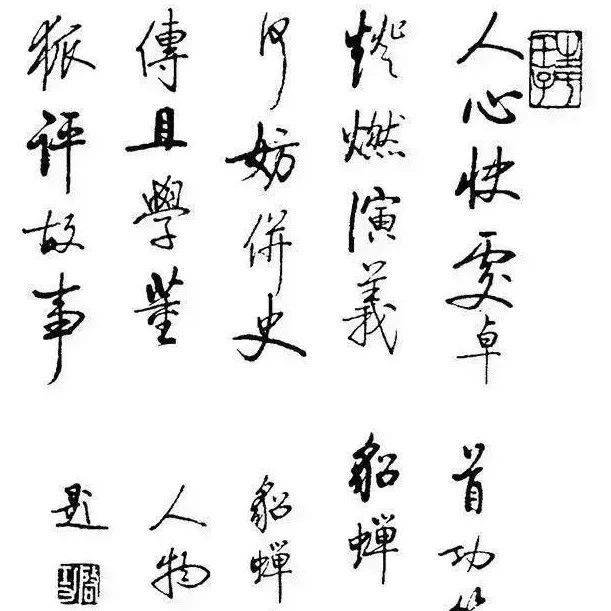 人心快處卓
燈燃演義
何妨併史
傳且學董
狐評故事
首功
貂蟬
貂蟬
人物
題